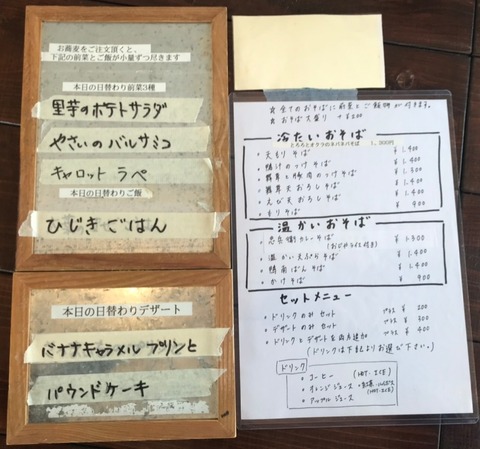 お蕎麦をご注文頂くと、
下記の前菜とご飯が小量ずつ尽きます
本日の日替わり前菜3種
里芋のポテトサラダ
やさいのバルサミコ
キャロット ラペ
本日の日替わりご飯
ひじきごはん
本日の日替わりデザート
バナナキャラメル プリンと
パウンドケーキ
☆ 全てのおそばに前菜とご飯物が付きます。
☆ おそば大盛り +¥200
冷たいおそば
とろろとオクラのネバネバそば 1,300円
• 天もりそば ¥1,400
• 鴨汁のつけそば
つけそば
おろしそば
• えび天おろしそば
• もりそば 900
温かいおそば
カレーそば (おじやライス付き) ¥1,300
• 温かい天ぷらそば ¥1,400
• 鴨南ばんそば ¥1,400
• かけそば ¥900
セットメニュー
• ドリンクのみセット プラス ¥200
• デザートのみセット プラス ¥300
• ドリンクとデザートを両方追加 プラス ¥400
(ドリンクは下記よりお選び下さい。)
ドリンク
• コーヒー (HOT・ICE)
• オレンジジュース
(HOT・ICE)
• アップルジュース